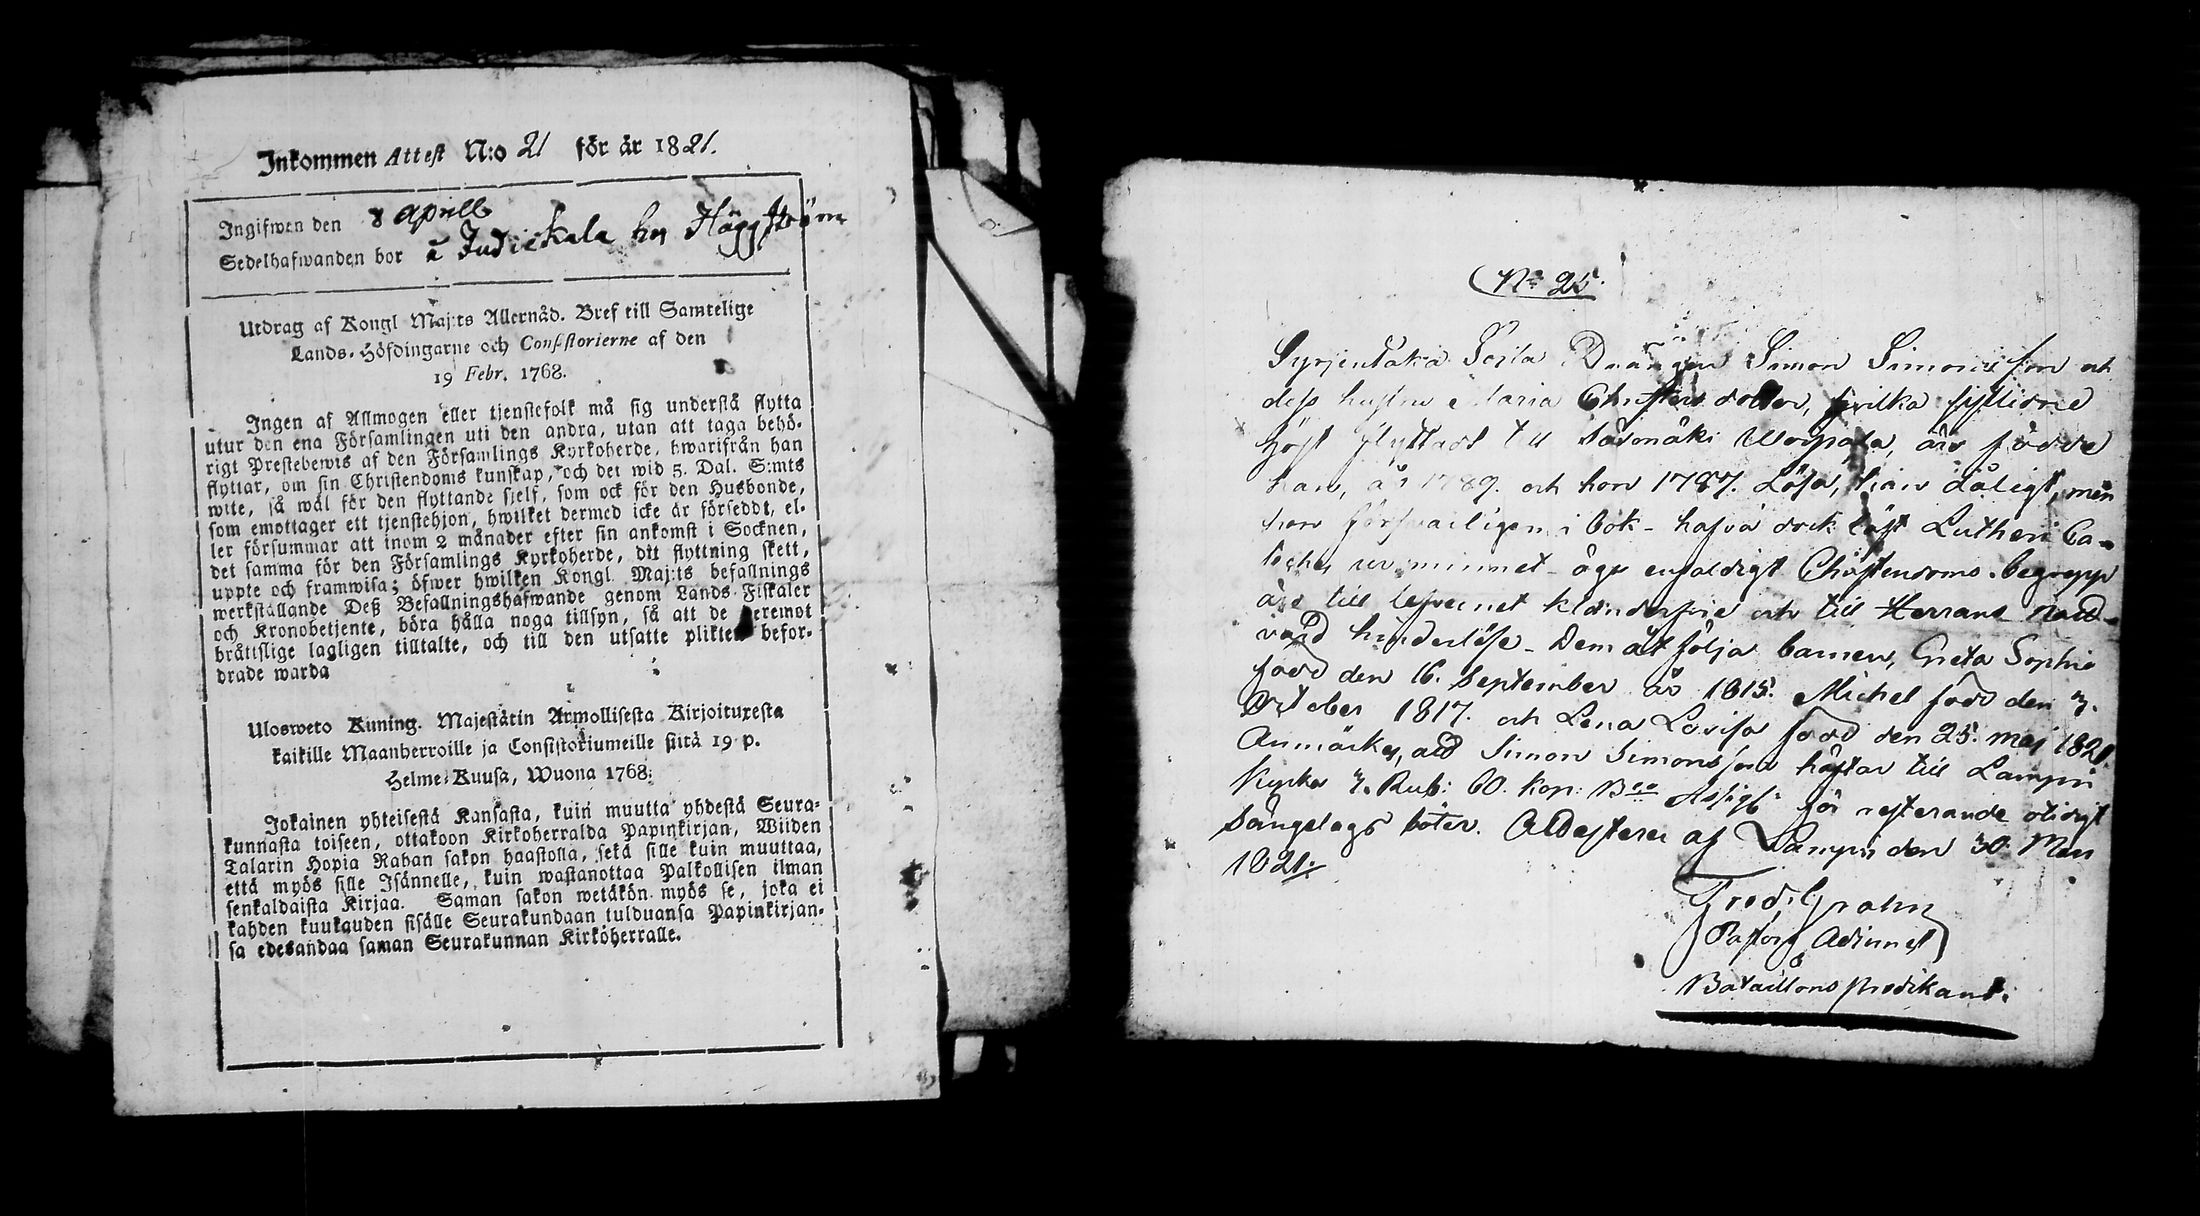 Inkommen Attest N:o 21 för år 1821.
Ingifwen den 8 Aprill
Sedelhafwanden bor i Judickala hos Häggström
Utdrag af Kongl Maj:ts Allernåd. Bref till Samtelige
Lands-Höfdingarne och Consistorierne af den
19 Febr. 1768.
Ingen af Allmogen eller tjenstefolk må sig understå flytta
utur den ena Församlingen uti den andra, utan att taga behö-
rigt Prestebewis af den Församlings Kyrkoherde, hwarifrån han
flyttar, om sin Christendoms kunskap, och det wid 5. Dal. S:mts
wite, så wäl för den flyttande sjelf, som ock för den Husbonde,
som emottager ett tjenstehjon, hwilket dermed icke är försedt, el-
ler försummar att inom 2 månader efter sin ankomst i Socknen,
det samma för den Församlings Kyrkoherde, dit flyttning skett,
uppte och framwisa; öfwer hwilken Kongl Maj:ts befallnings
werkställande Deß Befallningshafwande genom Lands-Fiskaler
och Kronobetjente, böra hålla noga tillsyn, så att de deremot
bråttslige lagligen tilltalte, och till den utsatte plikten befor-
drade warda
Ulosweto Kuning. Majestätin Armollisesta Kirjoituxesta
kaikille Maanherroille ja Consistoriumeille siitä 19 p.
Helme-Kuusa, Wuona 1768.
Jokainen yhteisestä Kansasta, kuin muutta yhdestä Seura-
kunnasta toiseen, ottakoon Kirkoherralda Papinkirjan, Wiiden
Talarin Hopia Rahan sakon haastolla, sekä sille kuin muuttaa,
että myös sille Isännelle, kuin wastanottaa Palkollisen ilman
senkaldaista Kirjaa. Saman sakon wetäkön myös se, joka ei
kahden kuukauden sisälle Seurakundaan tulduansa Papinkirjan-
sa edesandaa saman Seurakunnan Kirköherralle.
N:o 25.
Syrjentaka Drängen Simon Simonsson och
dess hustru Maria Christersdotter, hvilka sistledne
höst flyttade till Sääxmäki Uospala, äro födde
han, år 1789. och hon 1787. Läsa, han dåligt, men
hon försvarligen i bok - hafva dock läst Lutheri Ca-
teches ur minnet - äga enfaldigt Christendoms-begrepp
äro till lefvernet klanderfrie och till Herrans Natt-
vard hinderlöse - Dem åtfölja barnen, Greta Sophia
född den 16. September år 1815. Michel född den 3.
October 1817. och Lena Lovisa född den 25. Maj 1820.
Anmärkes, att Simon Simonsson häftar till Lampis
Kyrka 3. Rub: 60. kop: B:co Assign: för resterande otidigt
sängelags böter. Attesterar af Lampis den 30. Mars
1821.
Fred: Grahn
Pastors Adjunct
Bataillons predikant.